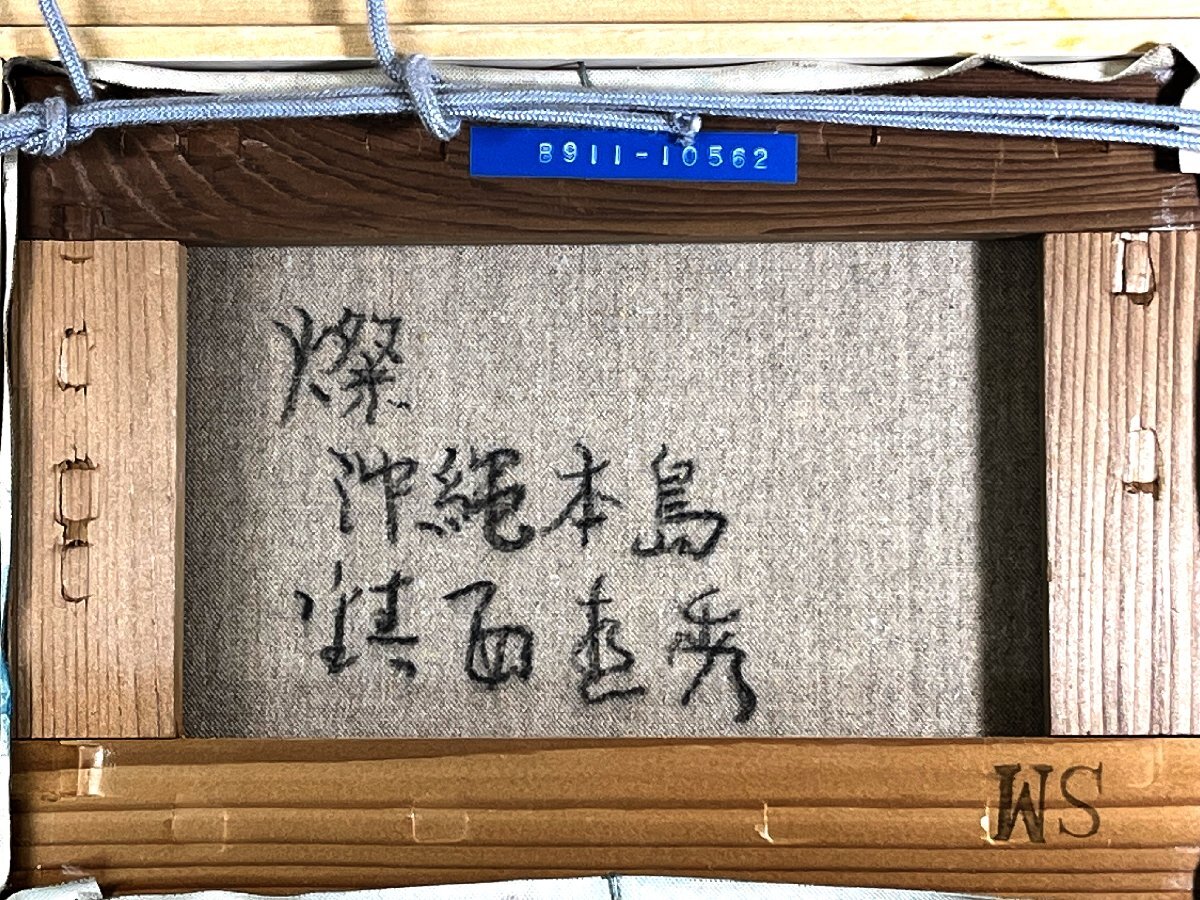 8911-10562
燦
沖縄本島
鎮西直秀
WS